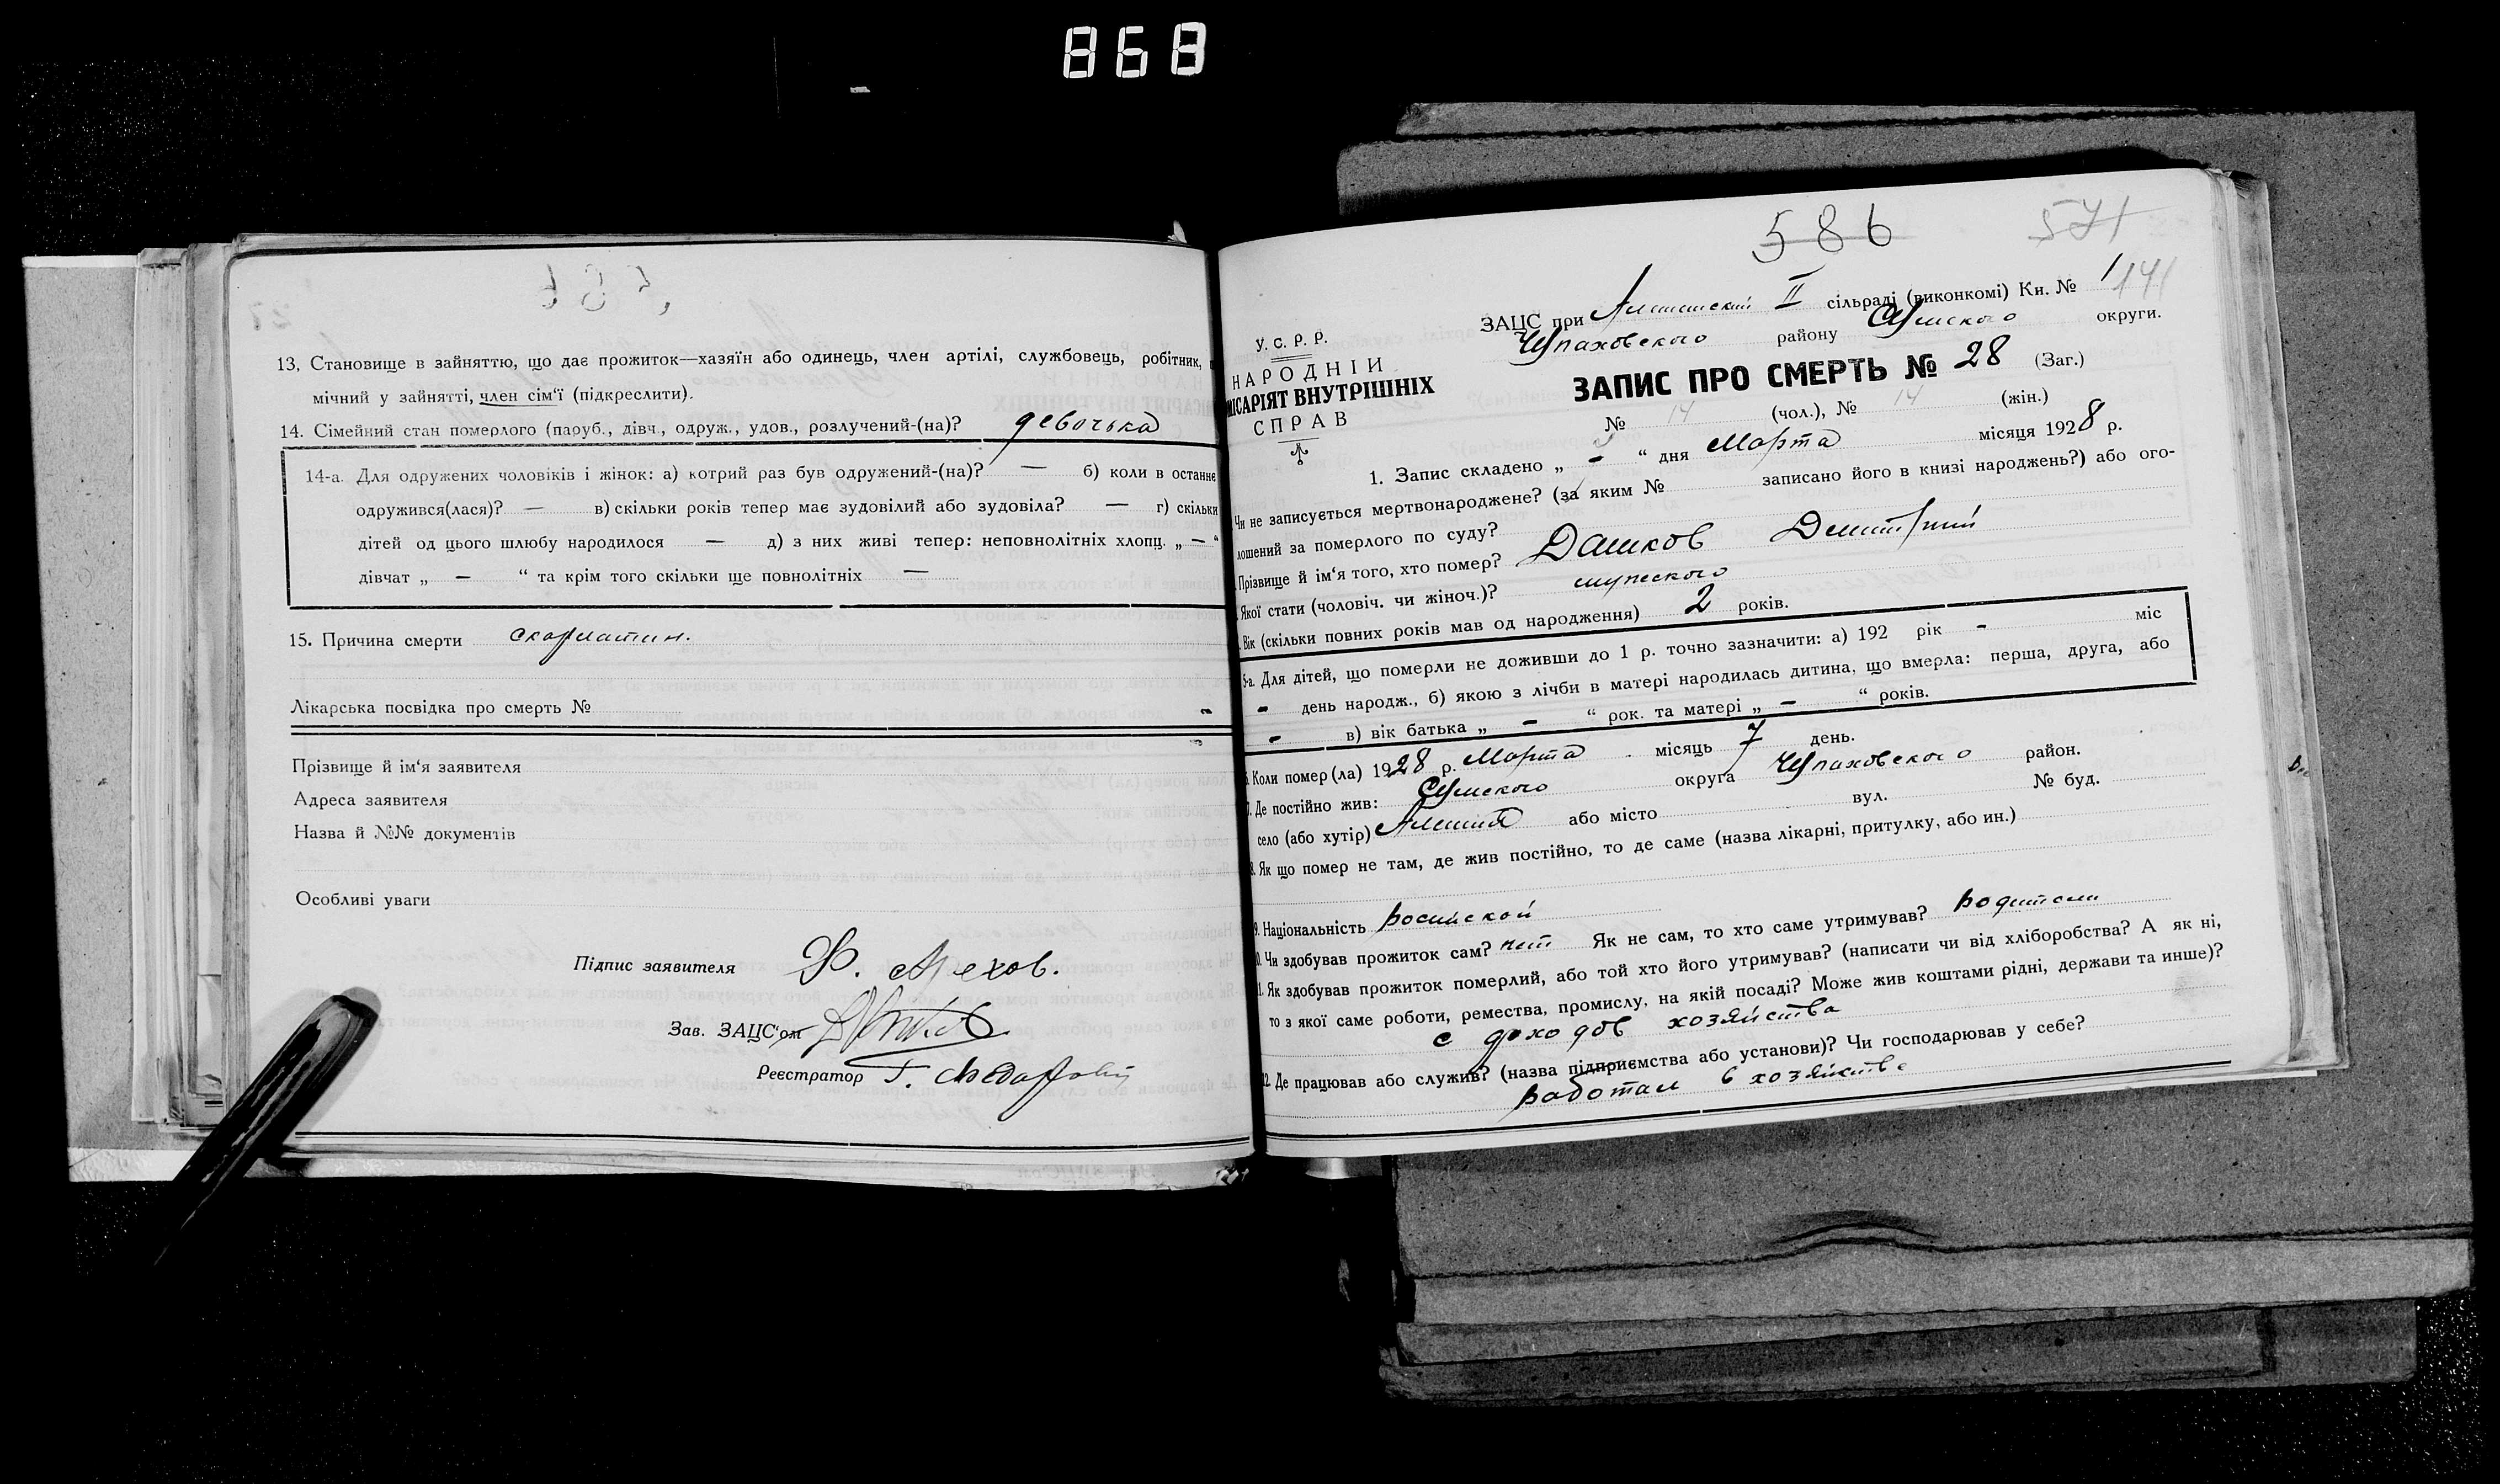 868
13. Становище в зайняттю, що дає прожиток—хазяїн або одинець, член артілі, службовець, робітник,
мічний у зайнятті, член сім'ї (підкреслити).
14. Сімейний стан померлого (паруб., дівч., одруж., удов., розлучений-(на)? девочька
14-а. Для одружених чоловіків і жінок: а) котрий раз був одружений-(на)? — б) коли в останнє
одружився(лася)? — в) скільки років тепер має зудовілий або зудовіла? — г) скільки
дітей од цього шлюбу народилося — д) з них живі тепер: неповнолітніх хлопц. „ — “
дівчат „ — “ та крім того скільки ще повнолітніх —
15. Причина смерти скарлатин.
Лікарська посвідка про смерть № -
Прізвище й ім'я заявителя
Адреса заявителя
Назва й №№ документів
Особливі уваги
Підпис заявителя
Зав. ЗАЦС'ом
Реєстратор Г.
586 571
ЗАЦС при II сільраді (виконкомі) Кн. № 1 141
Чупаховского району Сумского округи.
У. С. Р. Р.
НАРОДНІЙ
ІСАРІЯТ ВНУТРІШНІХ
СПРАВ
ЗАПИС ПРО СМЕРТЬ № 28 (Заг.)
№ 14 (чол.), № 14 (жін.)
1. Запис складено „ - “ дня Марта місяця 1928 р.
Чи не записується мертвонароджене? (за яким № записано його в книзі народжень?) або ого-
лошений за померлого по суду?
Прізвище й ім'я того, хто помер? Дашков Демитрий
Якої стати (чоловіч. чи жіноч.)? мужеского
Вік (скільки повних років мав од народження) 2 років.
5-а. Для дітей, що померли не доживши до 1 р. точно зазначити: а) 192 рік - міс
- день народж., б) якою з лічби в матері народилась дитина, що вмерла: перша, друга, або
- в) вік батька „ - “ рок. та матері „ - “ років.
Коли помер (ла) 1928 р. Марта місяць 7 день.
7. Де постійно жив: Сумского округа Чупаховского район.
село (або хутір) Алешня або місто вул. № буд.
8. Як що помер не там, де жив постійно, то де саме (назва лікарні, притулку, або ин.)
9. Національність росийской
0. Чи здобував прожиток сам? нет Як не сам, то хто саме утримував? родители
1. Як здобував прожиток померлий, або той хто його утримував? (написати чи від хліборобства? А як ні,
то з якої саме роботи, ремества, промислу, на якій посаді? Може жив коштами рідні, держави та инше)?
с доходов хозяйства
12. Де працював або служив? (назва підприємства або установи)? Чи господарював у себе?
работал в хозяйстве